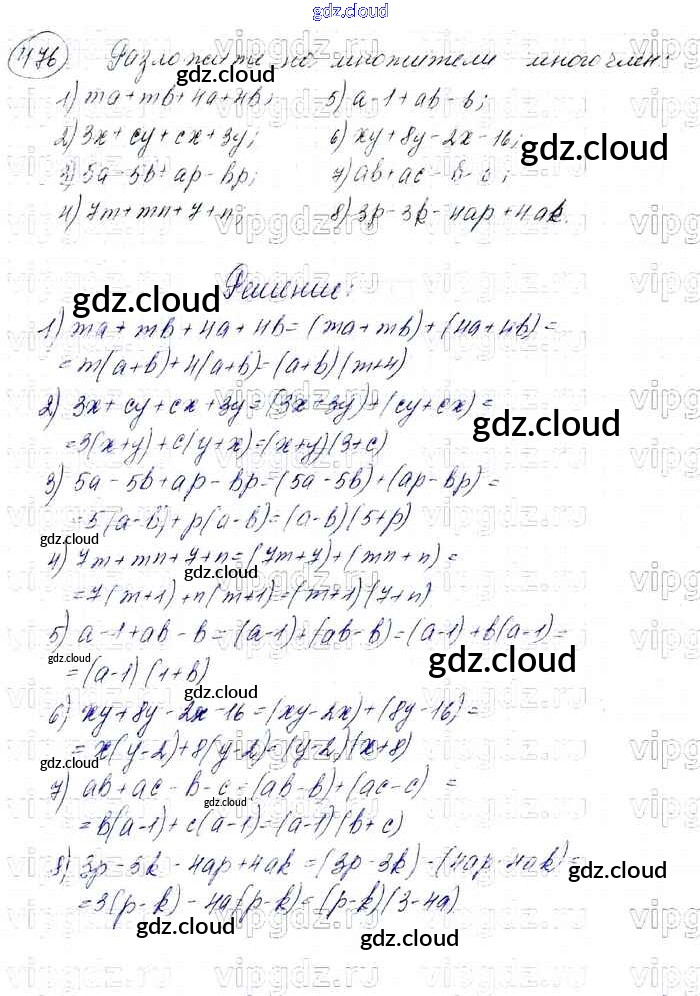 gdz.cloud
476 Разложите на множители многочлен:
1) ma + mb + 4a + 4b; 5) a - 1 + ab - b;
2) 3x + cy + cx + 3y; 6) xy + 8y - 2x - 16;
gdz.cloud
3) 5a - 5b + ap - bp; 7) ab + ac - b - c;
4) 7m + mn + 7 + n; 8) 3p - 3k - 4ap + 4ak.
Решение:
gdz.cloud
1) ma + mb + 4a + 4b = (ma + mb) + (4a + 4b) =
= m(a+b) + 4(a+b) = (a+b)(m+4)
2) 3x + cy + cx + 3y = (3x + 3y) + (cy + cx) =
gdz.cloud
= 3(x+y) + c(y+x) = (x+y)(3+c)
3) 5a - 5b + ap - bp = (5a - 5b) + (ap - bp) =
= 5(a-b) + p(a-b) = (a-b)(5+p)
gdz.cloud
4) 7m + mn + 7 + n = (7m + 7) + (mn + n) =
gdz.cloud
= 7(m+1) + n(m+1) = (m+1)(7+n)
5) a - 1 + ab - b = (a-1) + (ab - b) = (a-1) + b(a-1) =
gdz.cloud gdz.cloud
= (a-1)(1+b)
gdz.cloud
6) xy + 8y - 2x - 16 = (xy - 2x) + (8y - 16) =
= x(y-2) + 8(y-2) = (y-2)(x+8)
gdz.cloud gdz.cloud
7) ab + ac - b - c = (ab - b) + (ac - c) =
gdz.cloud
= b(a-1) + c(a-1) = (a-1)(b+c)
8) 3p - 3k - 4ap + 4ak = (3p - 3k) - (4ap - 4ak) =
gdz.cloud
= 3(p-k) - 4a(p-k) = (p-k)(3-4a)
gdz.cloud gdz.cloud
gdz.cloud